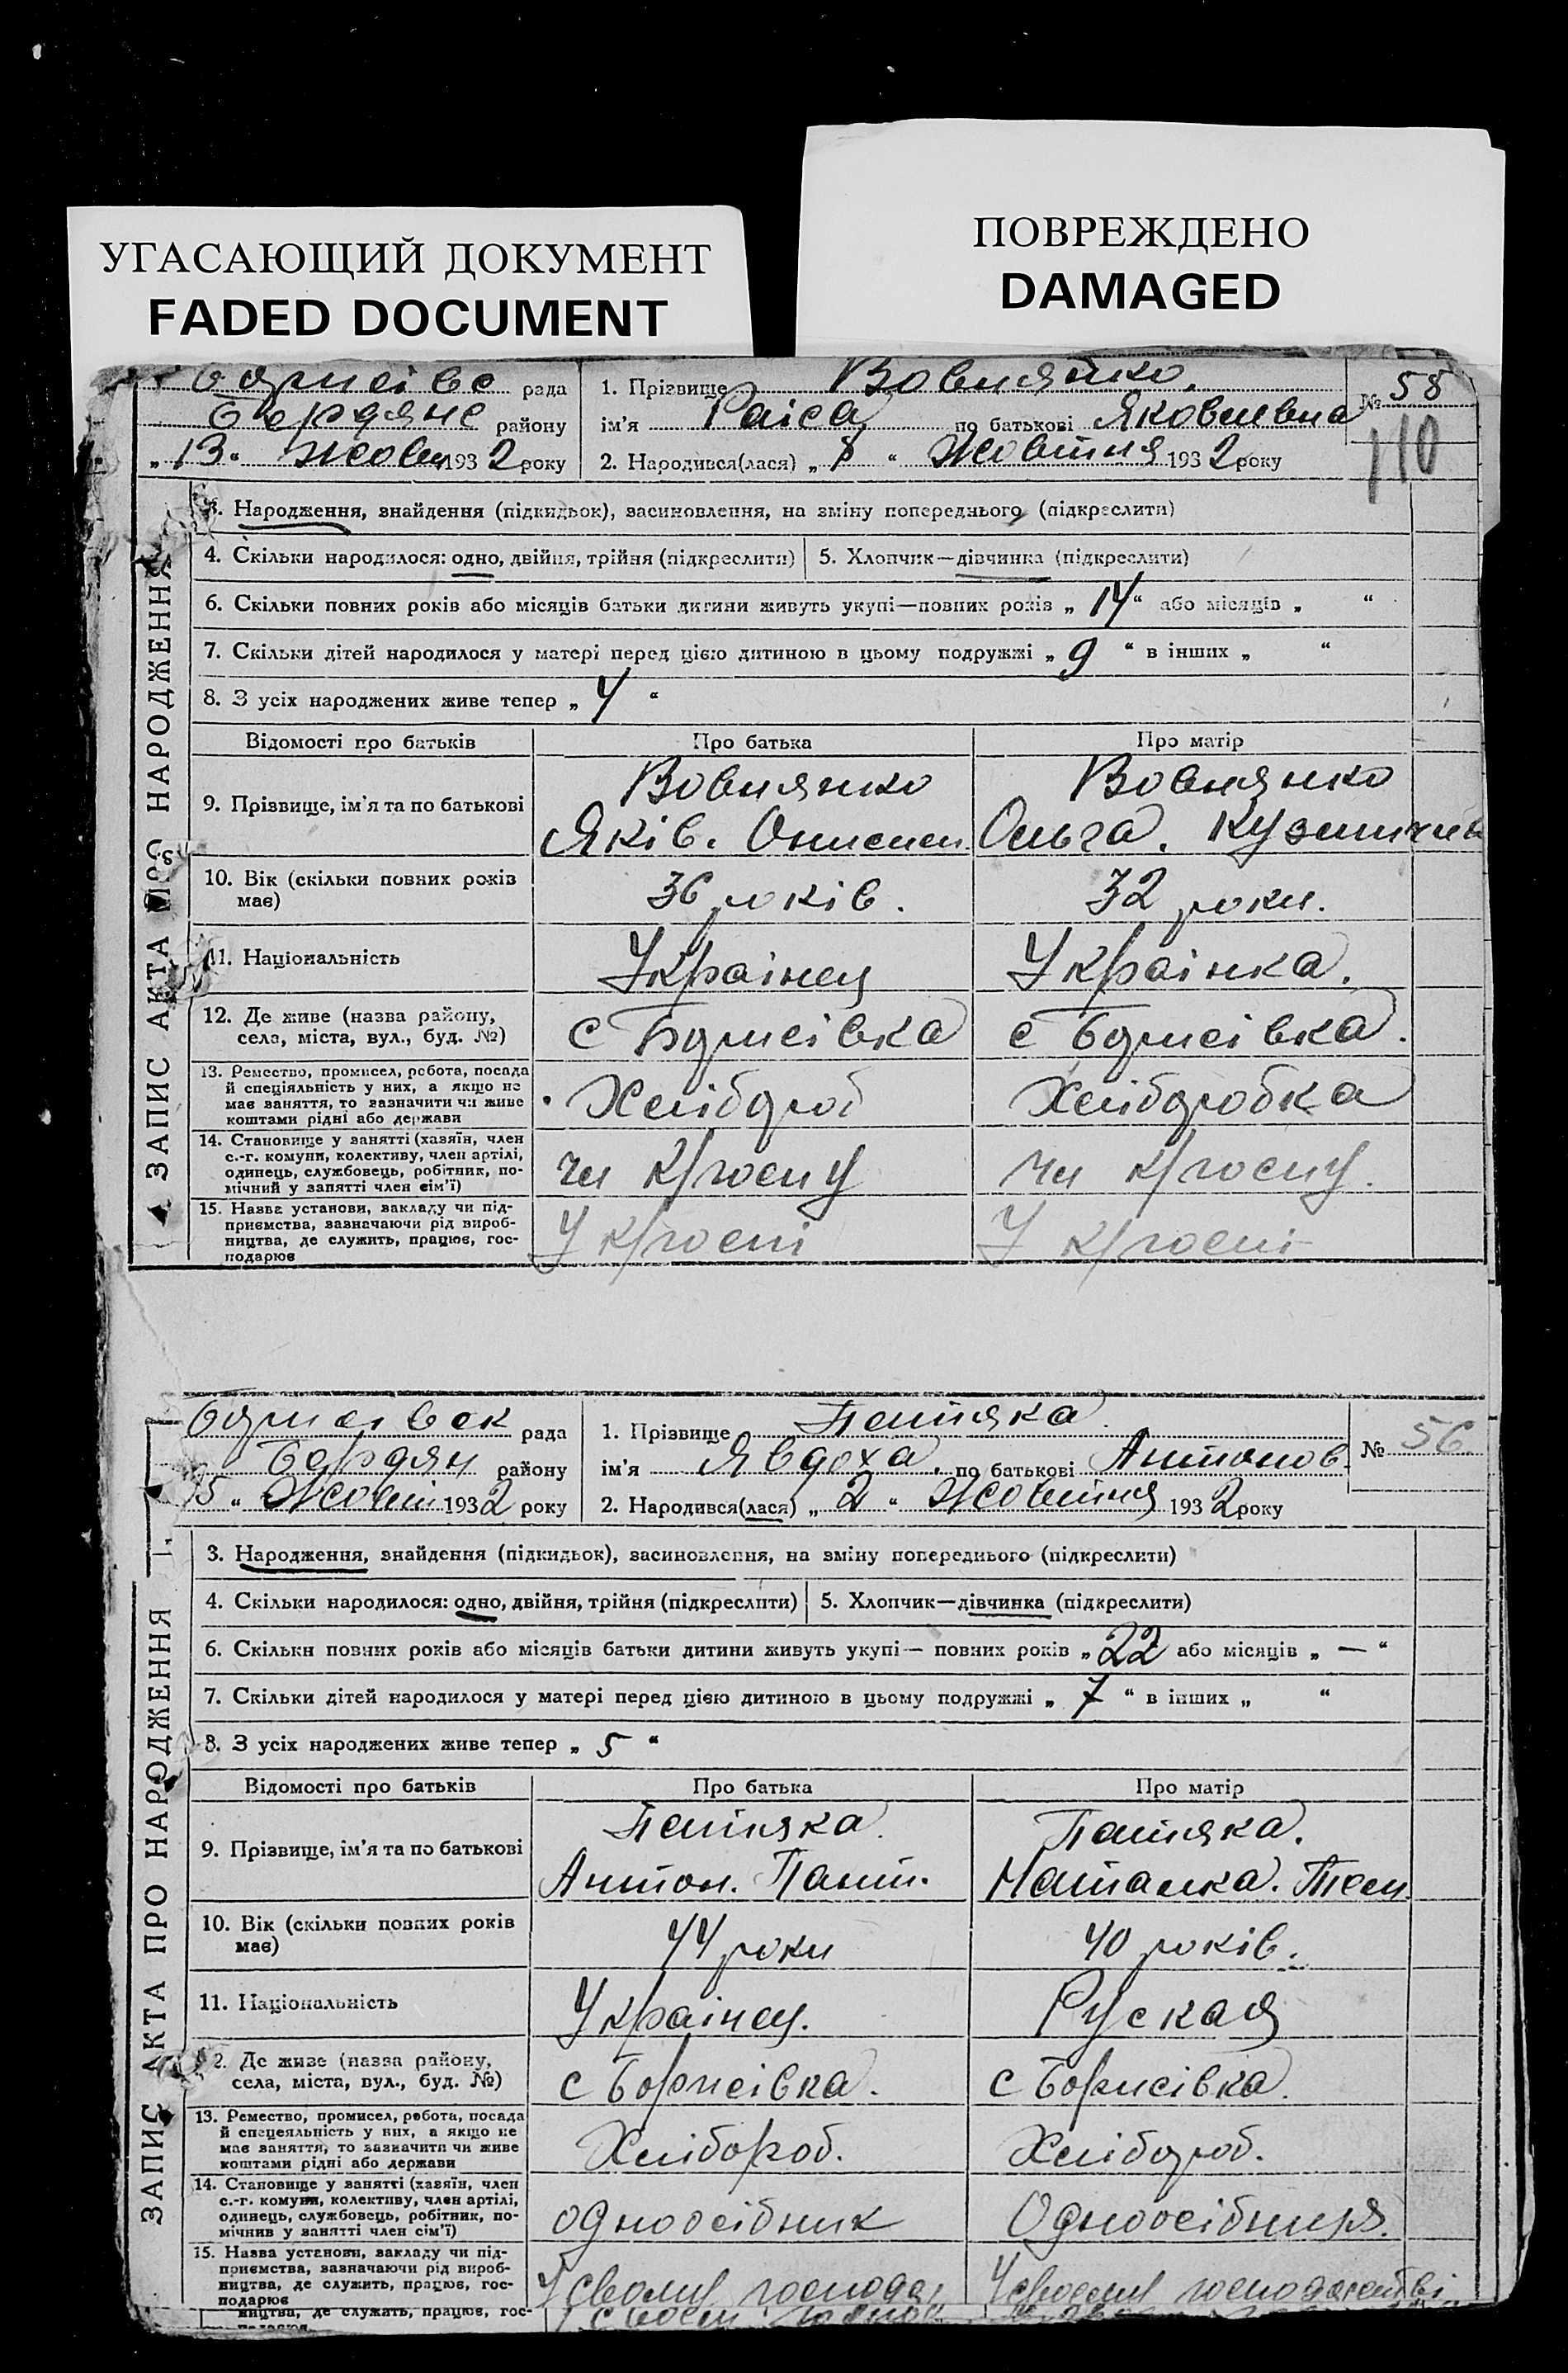 УГАСАЮЩИЙ ДОКУМЕНТ
FADED DOCUMENT
ПОВРЕЖДЕНО
DAMAGED
ЗАПИС АКТА ПРО НАРОДЖЕННЯ
Борисівс рада
Бердянс району
„13“ Жовтн 1932 року
1. Прізвище Вовнянко.
ім'я Раіса по батькові Яковлевна
2. Народився(лася) „8“ Жовтня 1932 року
№ 58
110
3. Народження, знайдення (підкидьок), засиновлення, на зміну попереднього (підкреслити)
4. Скільки народилося: одно, двійня, трійня (підкреслити)
5. Хлопчик—дівчинка (підкреслити)
6. Скільки повних років або місяців батьки дитини живуть укупі—повних років „14“ або місяців „ “
7. Скільки дітей народилося у матері перед цією дитиною в цьому подружжі „9“ в інших „ “
8. З усіх народжених живе тепер „4“
Відомості про батьків
Про батька
Про матір
9. Прізвище, ім'я та по батькові
Вовнянко
Яків.
Вовнянко
Ольга. Кузьмичив
10. Вік (скільки повних років
має)
36 років.
32 роки.
11. Національність
Українец
Українка.
12. Де живе (назва району,
села, міста, вул., буд. №)
с Борисівка
с Борисівка.
13. Ремество, промисел, робота, посада
й спеціяльність у них, а якщо не
має заняття, то зазначити чи живе
коштами рідні або держави
Хлібороб
Хліборобка
14. Становище у занятті (хазяїн, член
с.-г. комуни, колективу, член артілі,
одинець, службовець, робітник, по-
мічний у занятті член сім'ї)
чл к/госпу
чл к/госпу.
15. Назва установи, закладу чи під-
приємства, зазначаючи рід вироб-
ництва, де служить, працює, гос-
подарює
У к/госпі
У к/госпі
ЗАПИС АКТА ПРО НАРОДЖЕННЯ
Борисівск рада
Бердян району
15 “ Жовтн 1932 року
1. Прізвище Патяка.
ім'я Явдоха. по батькові Антонов.
2. Народився(лася) „2“ Жовтня 1932 року
№ 56
3. Народження, знайдення (підкидьок), засиновлення, на зміну попереднього (підкреслити)
4. Скільки народилося: одно, двійня, трійня (підкреслити)
5. Хлопчик—дівчинка (підкреслити)
6. Скільки повних років або місяців батьки дитини живуть укупі— повних років „22 або місяців „—“
7. Скільки дітей народилося у матері перед цією дитиною в цьому подружжі „7“ в інших „ “
8. З усіх народжених живе тепер „5“
Відомості про батьків
Про батька
Про матір
9. Прізвище, ім'я та по батькові
Патяка.
Антон. Пант.
Патяка.
Наталка.
10. Вік (скільки повних років
має)
44 роки
40 років.
11. Національність
Українец.
Руская
12. Де живе (назва району,
села, міста, вул., буд. №)
с Борисівка.
с Борисівка.
13. Ремество, промисел, робота, посада
й спецеяльність у них, а якщо не
має заняття, то зазначити чи живе
коштами рідні або держави
Хлібороб.
Хлібороб.
14. Становище у занятті (хазяїн, член
с.-г. комуни, колективу, член артілі,
одинець, службовець, робітник, по-
мічний у занятті член сім'ї)
одноосібник
Одноосібниця.
15. Назва установи, закладу чи під-
приємства, зазначаючи рід вироб-
ництва, де служить, працює, гос-
подарює
У своему господар
У своему господарстві
ництва, де служить, працює, гос-